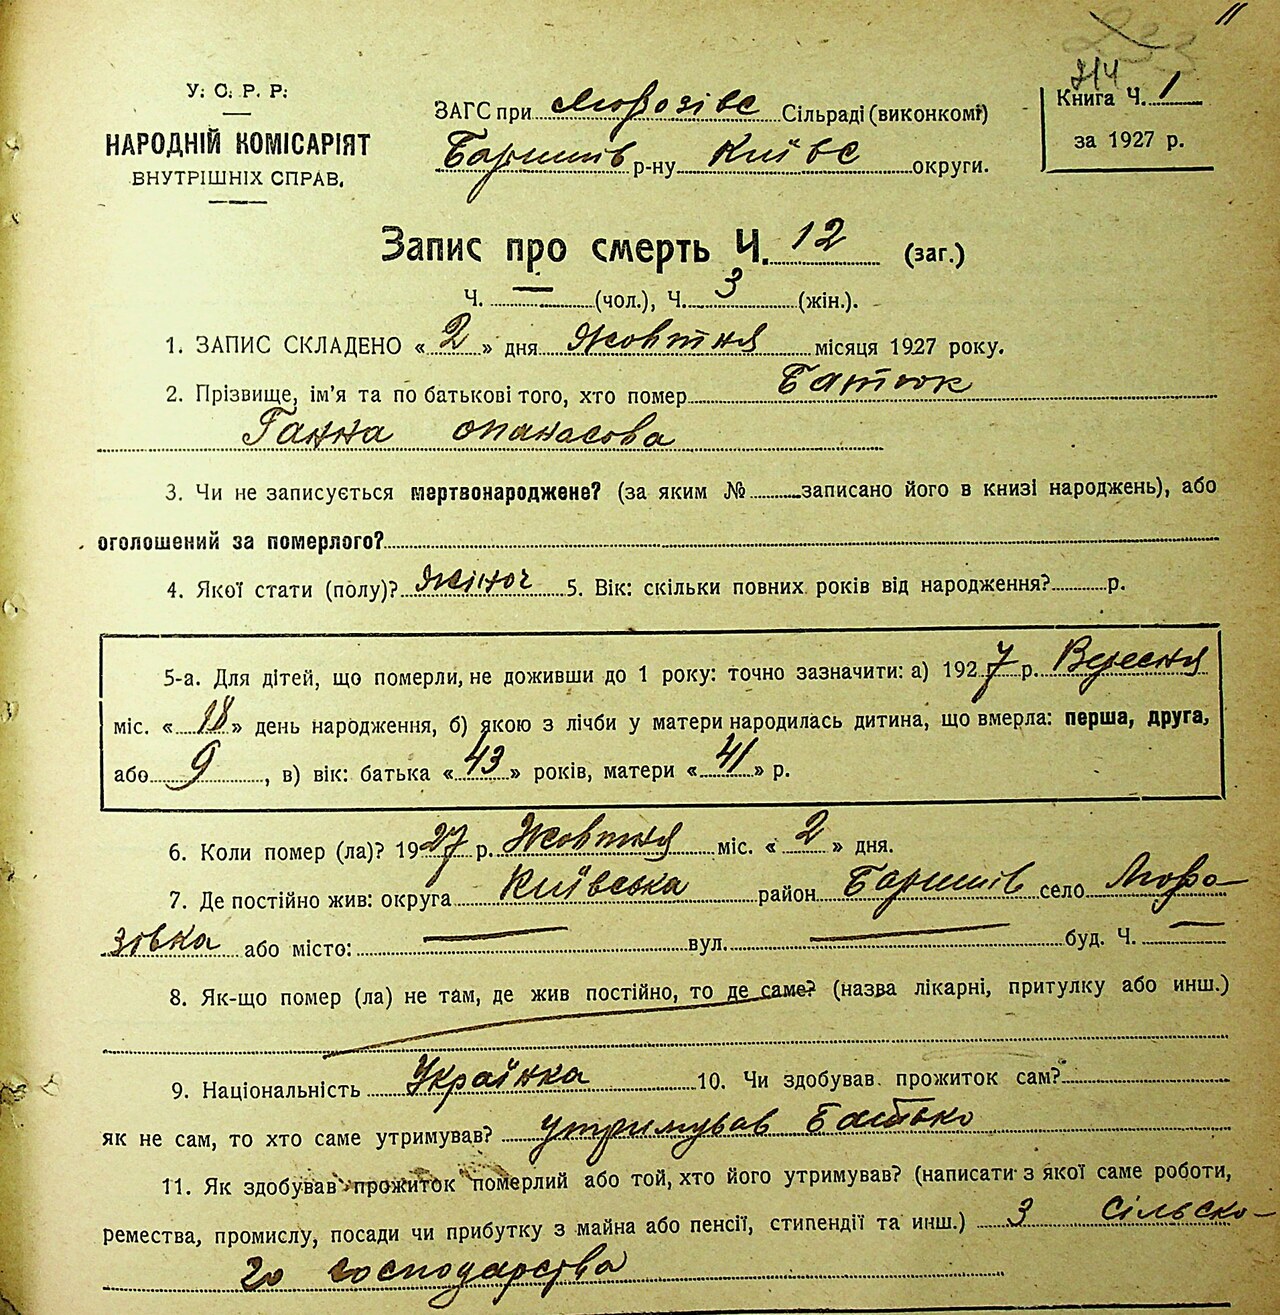 11
214
У. С. Р. Р.
НАРОДНІЙ КОМІСАРІЯТ
ВНУТРІШНІХ СПРАВ.
ЗАГС при Морозівс Сільраді (виконкомі)
Баришів р-ну Київс округи.
Книга Ч. 1
за 1927 р.
Запис про смерть Ч. 12 (заг.)
Ч. — (чол.), Ч. 3 (жін.).
1. ЗАПИС СКЛАДЕНО « 2 » дня Жовтня місяця 1927 року.
2. Прізвище, ім'я та по батькові того, хто помер Батюк
Ганна опанасова
3. Чи не записується мертвонароджене? (за яким № записано його в книзі народжень), або
оголошений за померлого?
4. Якої стати (полу)? Жіноч 5. Вік: скільки повних років від народження? р.
5-а. Для дітей, що померли, не доживши до 1 року: точно зазначити: а) 1927 р. Вересня
міс. « 18 » день народження, б) якою з лічби у матери народилась дитина, що вмерла: перша, друга,
або 9, в) вік: батька « 43 » років, матери « 41 » р.
6. Коли помер (ла)? 1927 р. Жовтня міс. « 2 » дня.
7. Де постійно жив: округа Київська район Баришів село Моро-
зовка або місто: — вул. — буд. Ч. —
8. Як-що помер (ла) не там, де жив постійно, то де саме? (назва лікарні, притулку або инш.)
9. Національність Українка 10. Чи здобував прожиток сам?
як не сам, то хто саме утримував? утримував Батько
11. Як здобував прожиток померлий або той, хто його утримував? (написати з якої саме роботи,
ремества, промислу, посади чи прибутку з майна або пенсії, стипендії та инш.) З Сільско-
го господарства